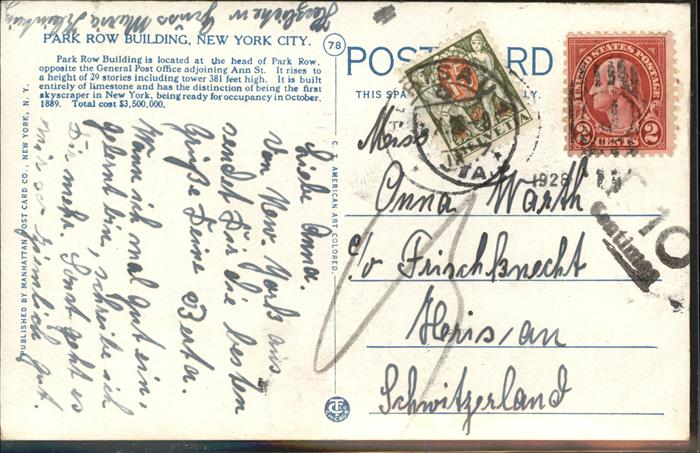 Herzlichen Gruss Maria
PARK ROW BUILDING, NEW YORK CITY.
Park Row Building is located at the head of Park Row,
opposite the General Post Office adjoining Ann St. It rises to
a height of 29 stories including tower 381 feet high. It is built
entirely of limestone and has the distinction of being the first
skyscraper in New York, being ready for occupancy in October,
1889. Total cost $3,500,000.
PUBLISHED BY MANHATTAN POST CARD CO., NEW YORK, N. Y.
78
C. T. AMERICAN ART COLORED.
Liebe Anna.
Von New-York aus
sendet Dir die besten
Grüße Deine Berta.
Wenn ich mal gut ein-
gelernt bin, schreibe ich
Dir mehr. Sonst geht es
mir so ziemlich gut.
POST CARD
THIS SPA LY.
HELVETIA
TAX
1928
UNITED STATES POSTAGE
2 CENTS 2
T 10
Centimes
Miss
Anna Warth
c/o Frischknecht
Heris/au
Schwitzerland